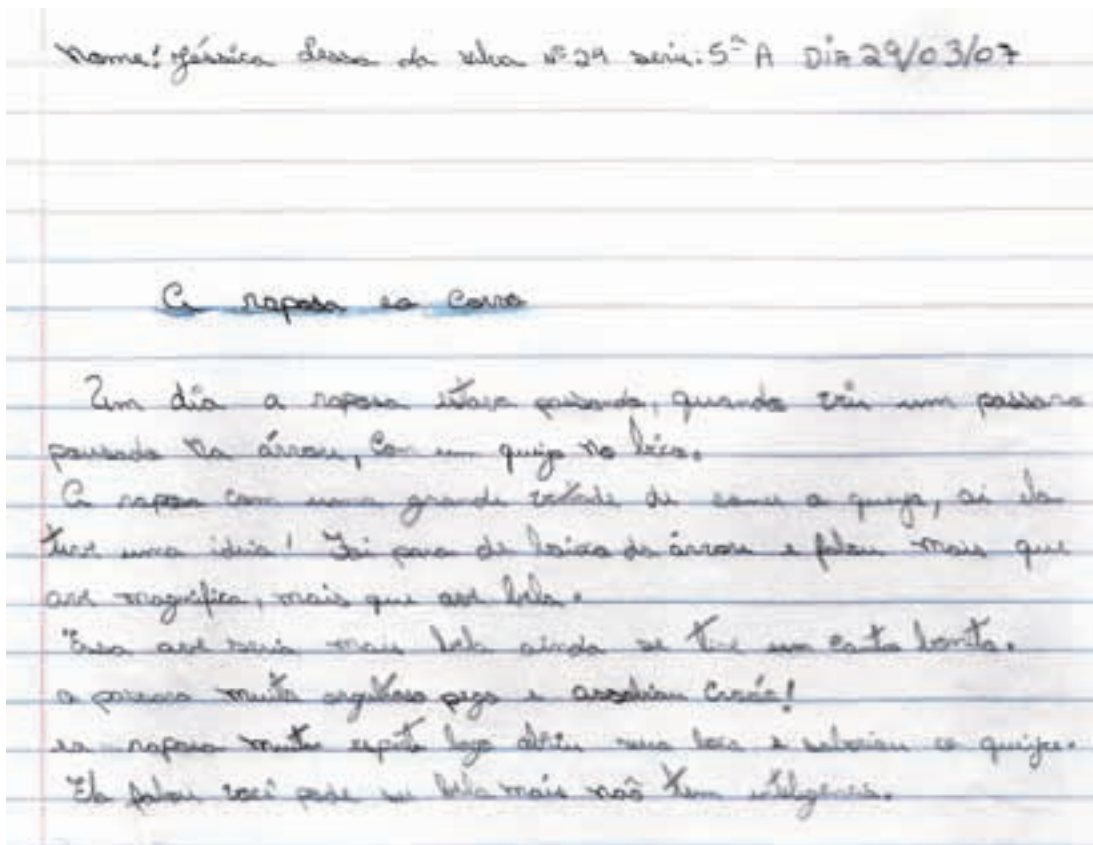 Nome: Jéssica da silva nº 29 serie: 5ª A Dia 29/03/07
A raposa eo Corvo
Um dia a raposa estava passando, quando viu um passaro
pousado na árvore, Com um queijo no bico.
A raposa com uma grande de comer o queijo, ai ela
teve uma ideia! Foi para de baixo da árvore e falou mais que
ave magnifica, mais que ave bela.
Essa ave seria mais bela ainda se um canto bonito.
o muito pego e assobiou
ea raposa muito logo abriu sua boca e saboriou o queijo.
Ela falou você pode ser bela mais naõ tem